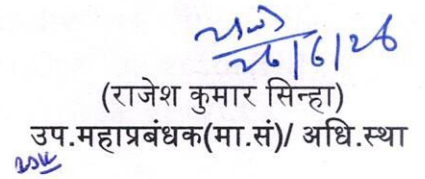 26/6/26
(राजेश कुमार सिन्हा)
उप.महाप्रबंधक(मा.सं)/ अधि.स्था